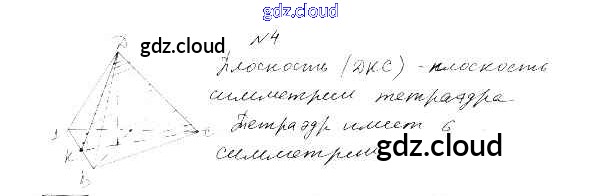 gdz.cloud
№4
gdz.cloud
Плоскость (ДКС) - плоскость
симметрии тетраэдра.
Тетраэдр имеет 6
симметрии
gdz.cloud
Д
А
С
К
В